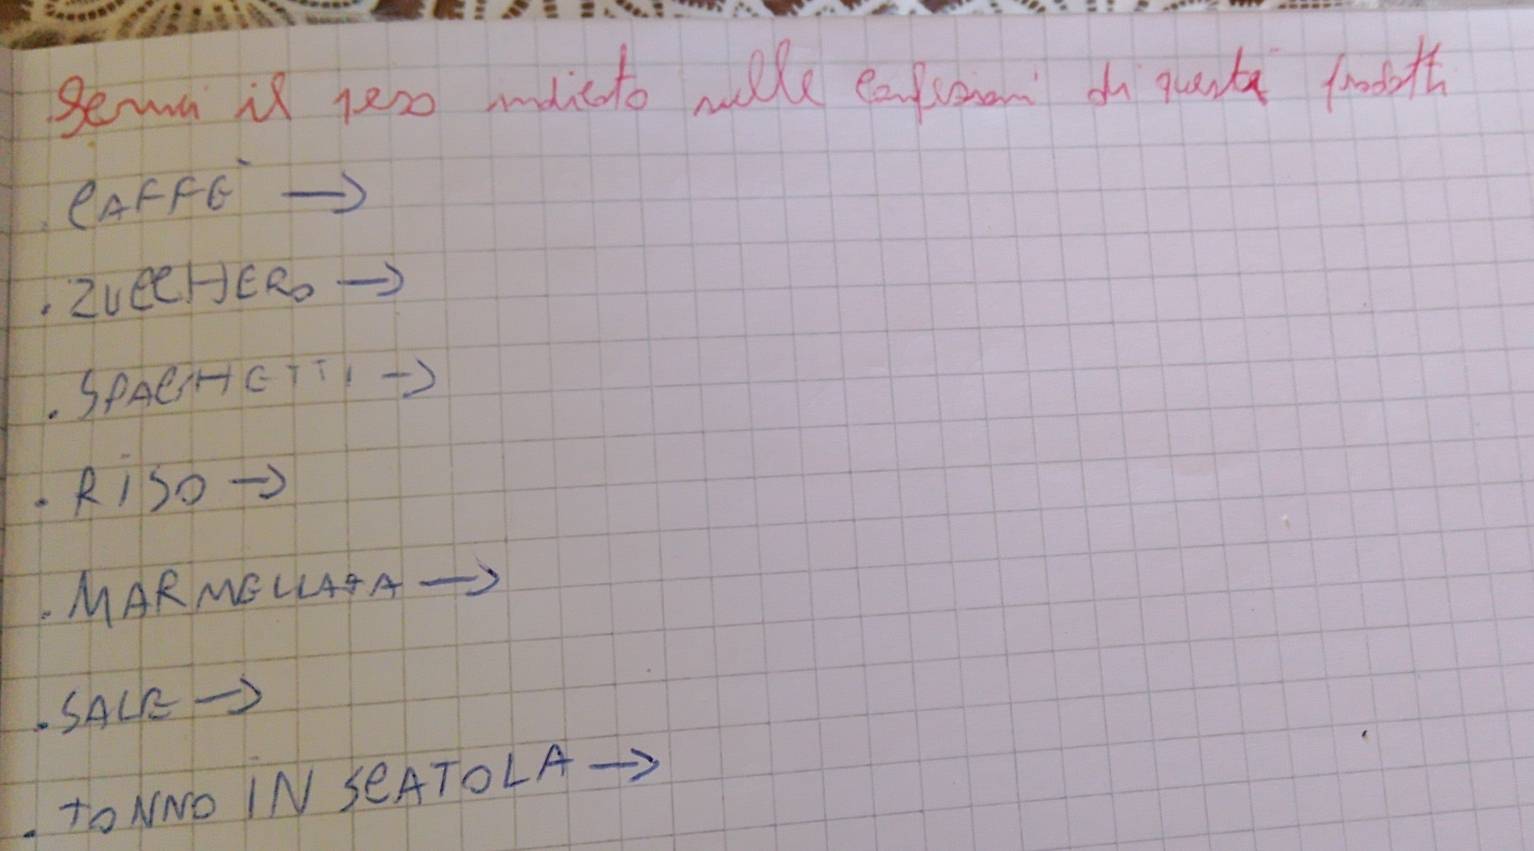 Scrivi il peso indicato sulle confezioni di questi prodotti
. CAFFÈ →
. ZUCCHERO →
. SPAGHETTI →
. RISO →
. MARMELLATA →
. SALE →
. TONNO IN SCATOLA →